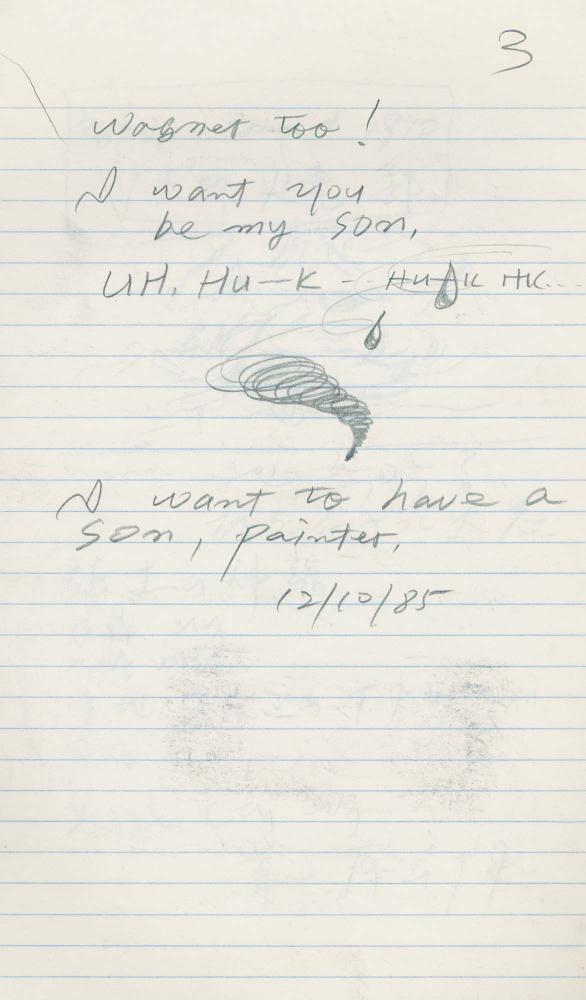 3
Wagner too!
I want you
be my son,
UH, Hu—K -- Hu-K HK...
I want to have a
son, painter,
12/10/85